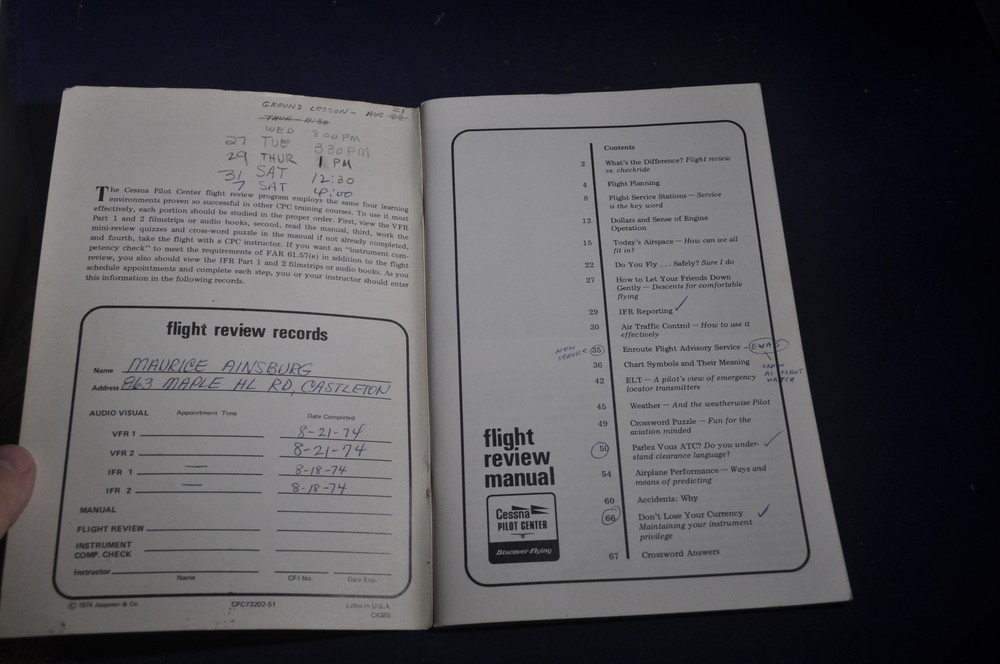 GROUND LESSON - AUG 21
THUR - 11:30
WED 8:00 PM
27 TUE 3:30 PM
29 THUR 1 PM
31 SAT 12:30
7 SAT 4:00
The Cessna Pilot Center flight review program employs the same four learning
environments proven so successful in other CPC training courses. To use it most
effectively, each portion should be studied in the proper order. First, view the VFR
Part 1 and 2 filmstrips or audio books, second, read the manual, third, work the
mini-review quizzes and cross-word puzzle in the manual if not already completed,
and fourth, take the flight with a CPC instructor. If you want an "instrument com-
petency check" to meet the requirements of FAR 61.57(e) in addition to the flight
review, you also should view the IFR Part 1 and 2 filmstrips or audio books. As you
schedule appointments and complete each step, you or your instructor should enter
this information in the following records.
flight review records
Name MAURICE AINSBURG
Address 863 MAPLE HL RD, CASTLETON
AUDIO VISUAL Appointment Time Date Completed
VFR 1 8-21-74
VFR 2 8-21-74
IFR 1 — 8-18-74
IFR 2 — 8-18-74
MANUAL
FLIGHT REVIEW
INSTRUMENT
COMP. CHECK
Instructor
Name CFI No. Date Exp.
© 1974 Jeppesen & Co. CPC73202-51 Litho in U.S.A.
Contents
2 What's the Difference? Flight review
vs. checkride
4 Flight Planning
8 Flight Service Stations — Service
is the key word
12 Dollars and Sense of Engine
Operation
15 Today's Airspace — How can we all
fit in?
22 Do You Fly . . . Safely? Sure I do
27 How to Let Your Friends Down
Gently — Descents for comfortable
flying
29 IFR Reporting ✓
30 Air Traffic Control — How to use it
effectively
NEW
SERVICE 35 Enroute Flight Advisory Service - EWAS
KNOWN
AS FLIGHT
WATCH
36 Chart Symbols and Their Meaning
42 ELT — A pilot's view of emergency
locator transmitters
45 Weather — And the weatherwise Pilot
49 Crossword Puzzle — Fun for the
aviation minded
50 Parlez Vous ATC? Do you under- ✓
stand clearance language?
54 Airplane Performance — Ways and
means of predicting
60 Accidents: Why
66 Don't Lose Your Currency ✓
Maintaining your instrument
privilege
67 Crossword Answers
flight
review
manual
Cessna
PILOT CENTER
Discover Flying